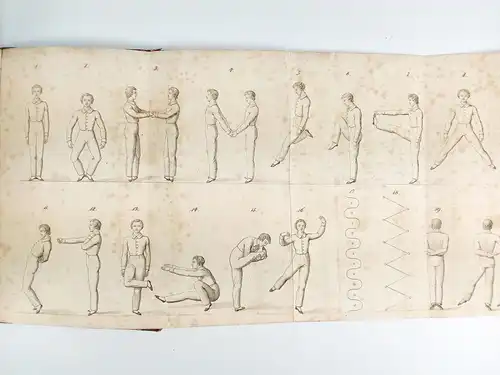 1. 2. 3. 4. 5. 6. 7. 8.
11. 12. 13. 14. 15. 16. 17. 18. 19.